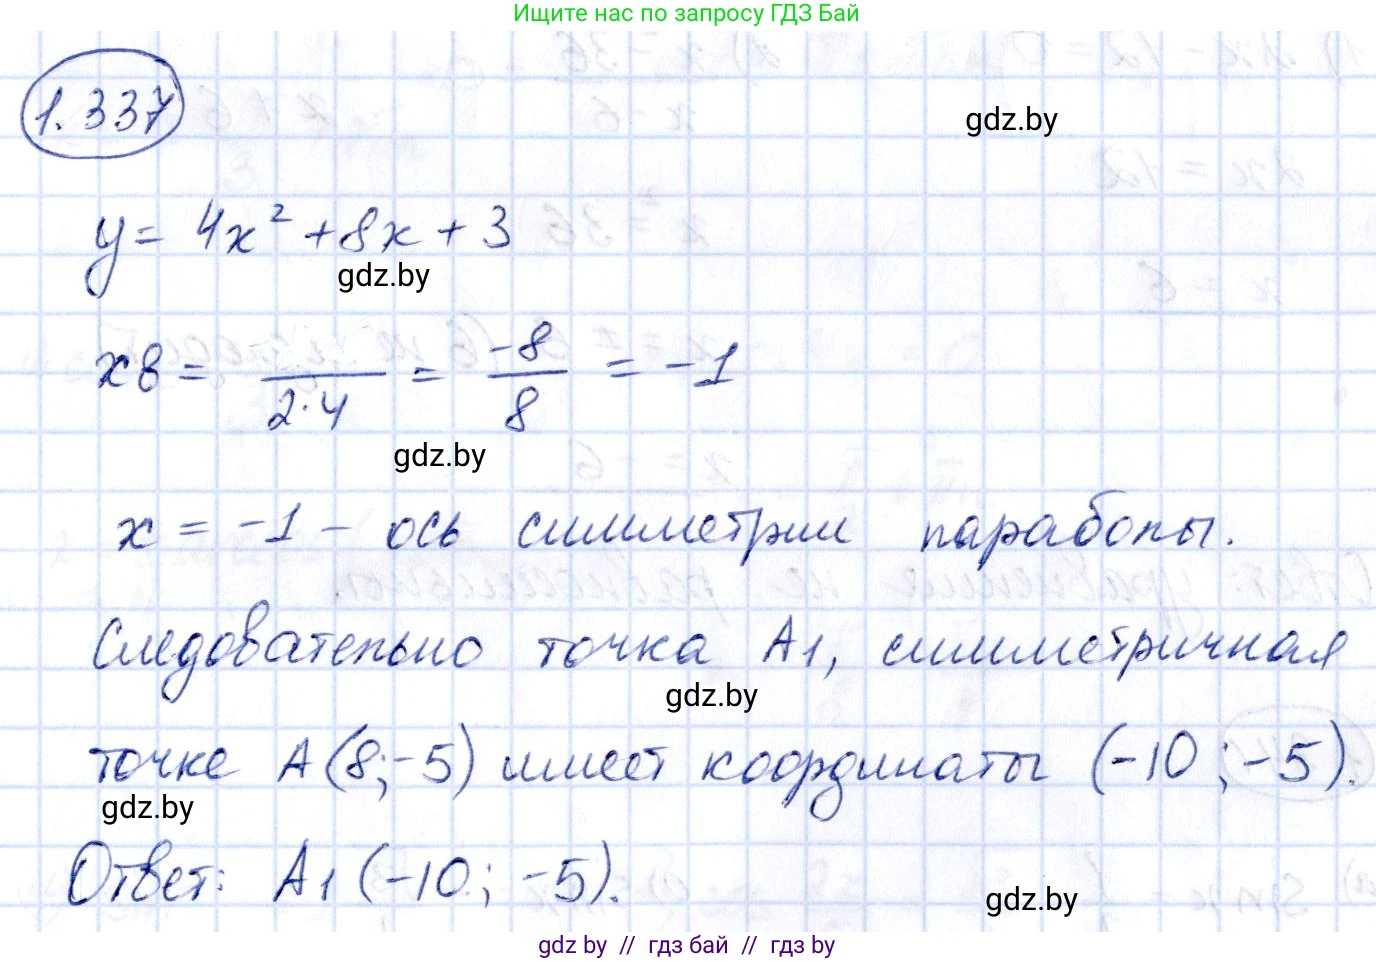 Ищите нас по запросу ГДЗ Бай
1.337
gdz.by
y = 4x² + 8x + 3
gdz.by
xв = /(2·4) = -8/8 = -1
gdz.by
x = -1 - ось симметрии параболы.
Следовательно точка A1, симметричная
gdz.by
точке A(8;-5) имеет координаты (-10; -5).
gdz.by
Ответ: A1 (-10; -5).
gdz.by
gdz by // гдз бай // гдз by